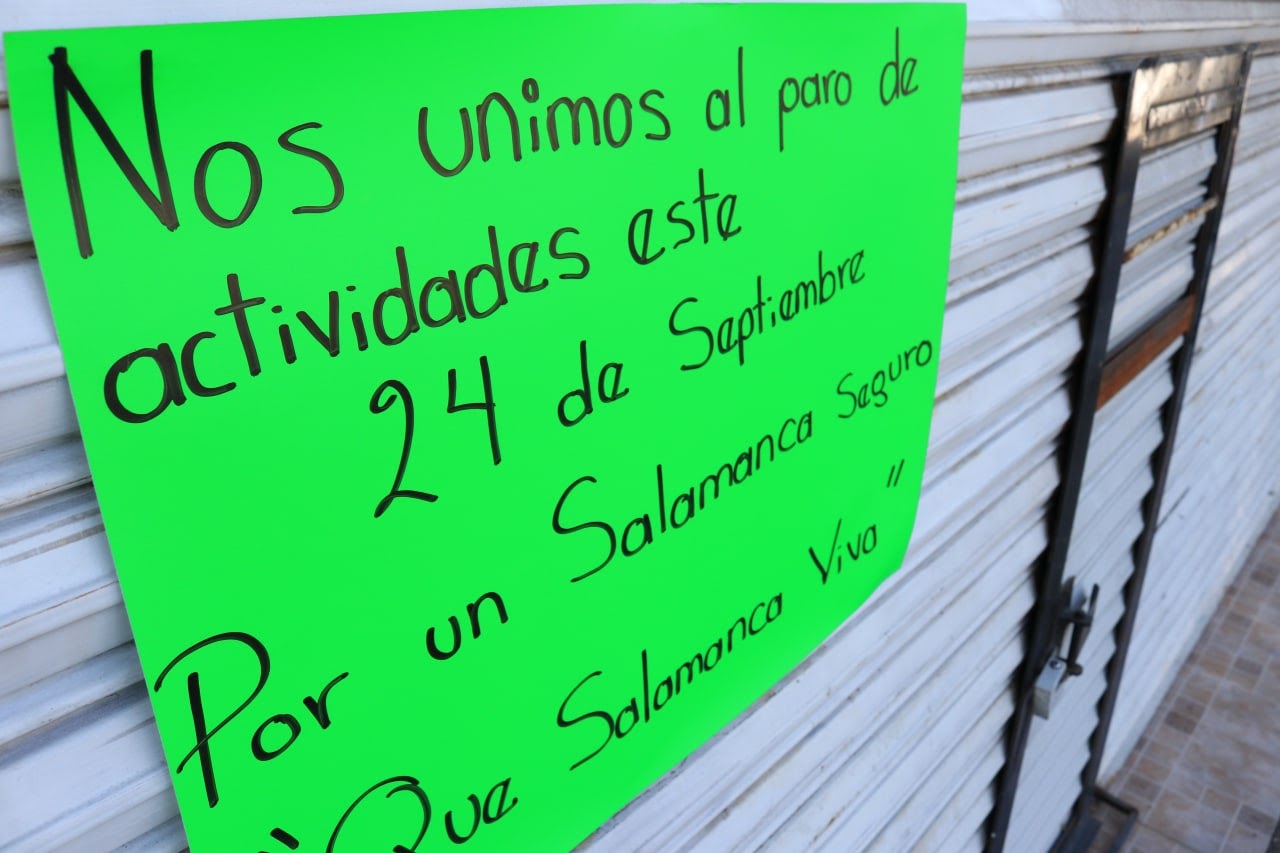 Nos unimos al paro de
actividades este
24 de Septiembre
Por un Salamanca Seguro
"Que Salamanca Viva"